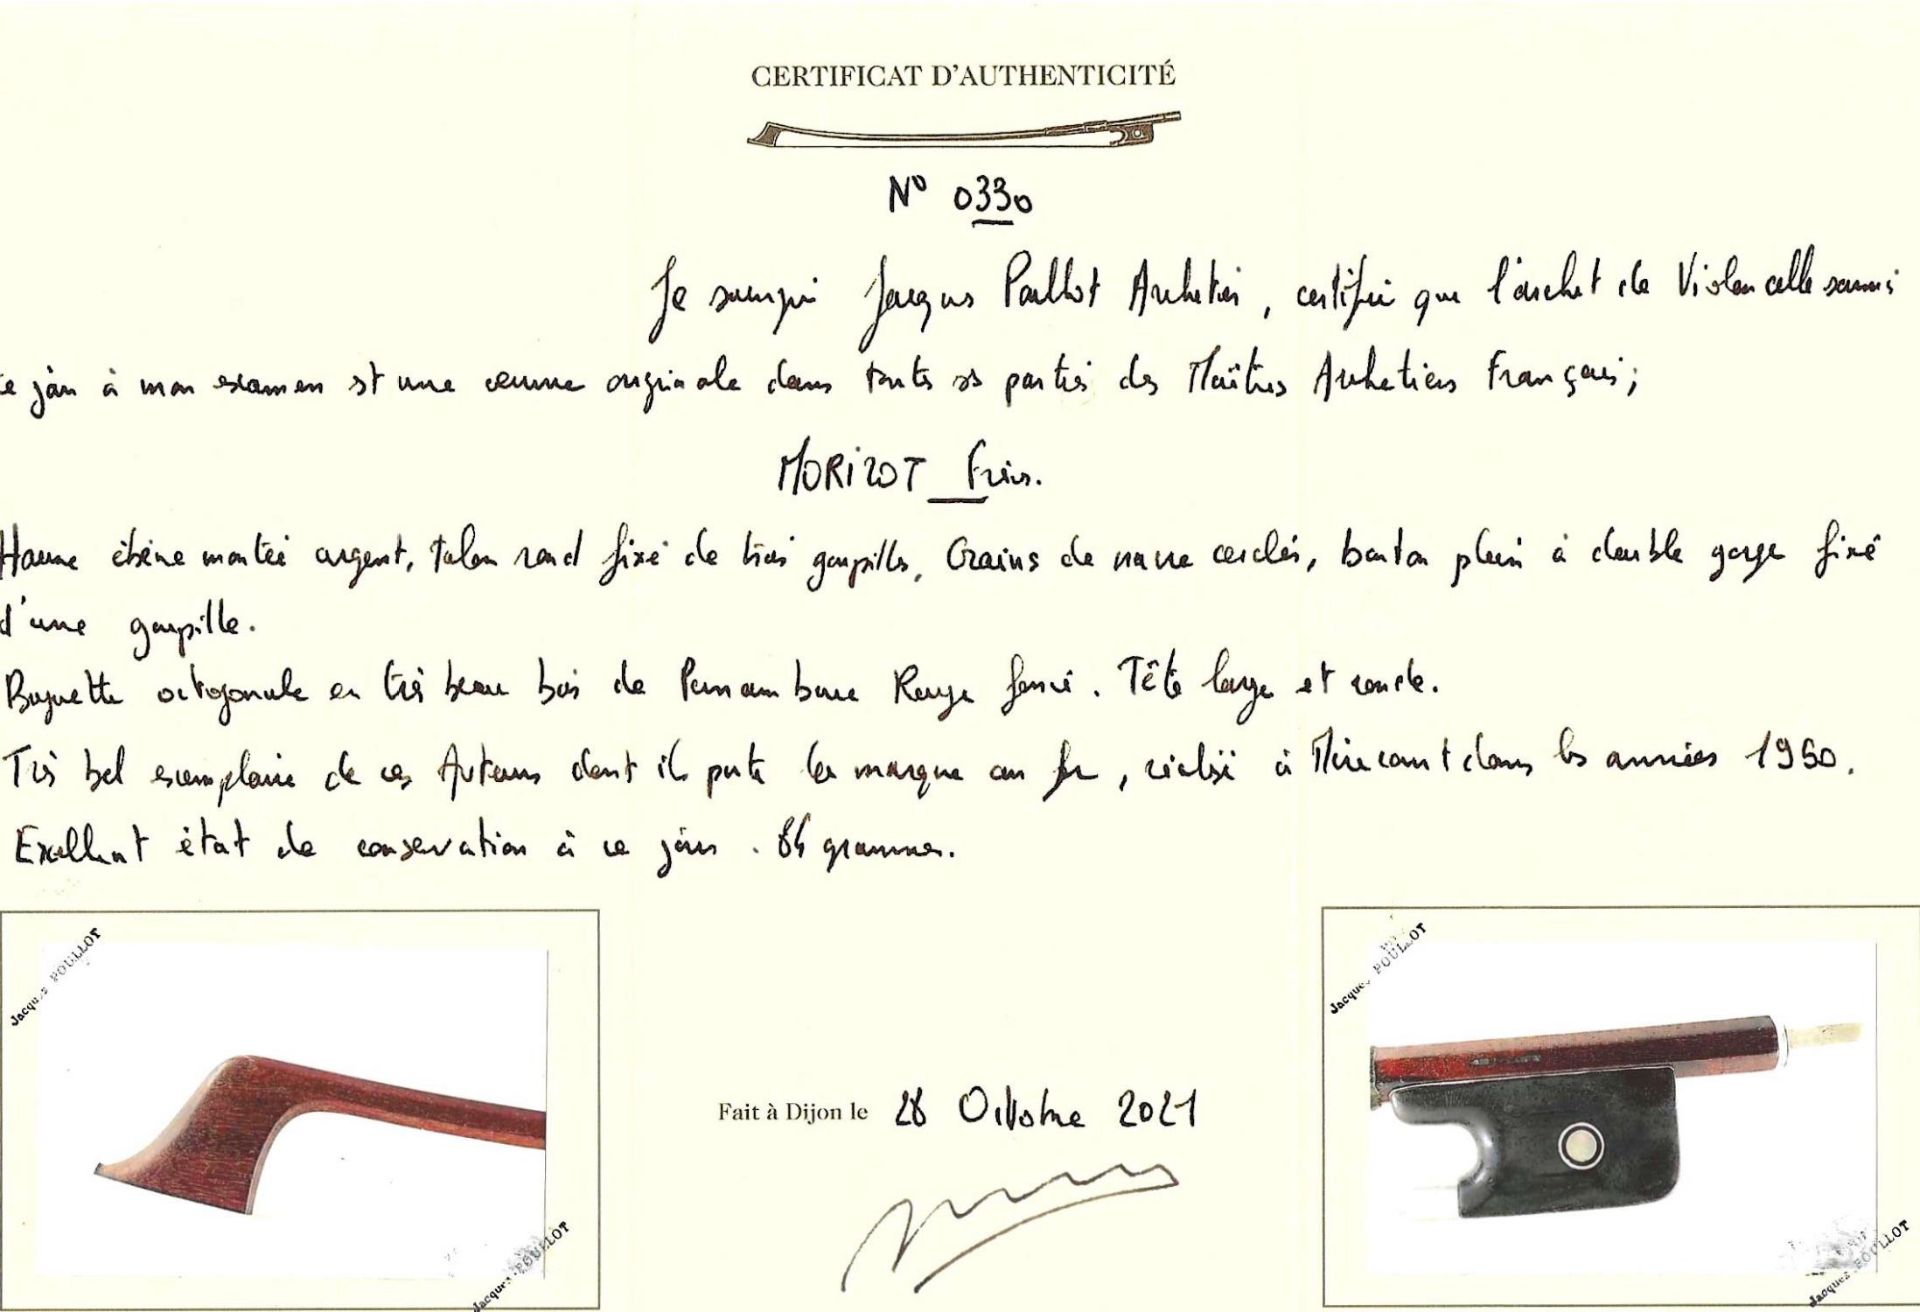 CERTIFICAT D'AUTHENTICITÉ
N° 0330
Je soussigné Jacques Poullot Archetier, certifie que l'archet de Violoncelle soumis
ce jour à mon examen est une œuvre originale dans toutes ses parties des Maîtres Archetiers Français;
MORIZOT Frères.
Hausse ébène montée argent, talon rond fixé de trois goupilles, Grains de nacre cerclés, bouton plein à double gorge fixé
d'une goupille.
Baguette octogonale en très beau bois de Pernambouc Rouge foncé. Tête large et ronde.
Très bel exemplaire de ces Auteurs dont il porte la marque au fer, réalisé à Mirecourt dans les années 1950.
Excellent état de conservation à ce jour. grammes.
Jacques POULLOT
Jacques POULLOT
Fait à Dijon le 28 Octobre 2021
Jacques POULLOT
Jacques POULLOT